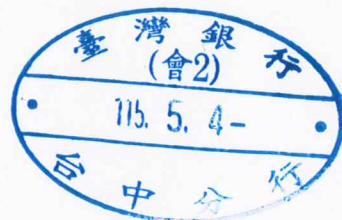 臺灣銀行
(會2)
115. 5. 4-
台中分行